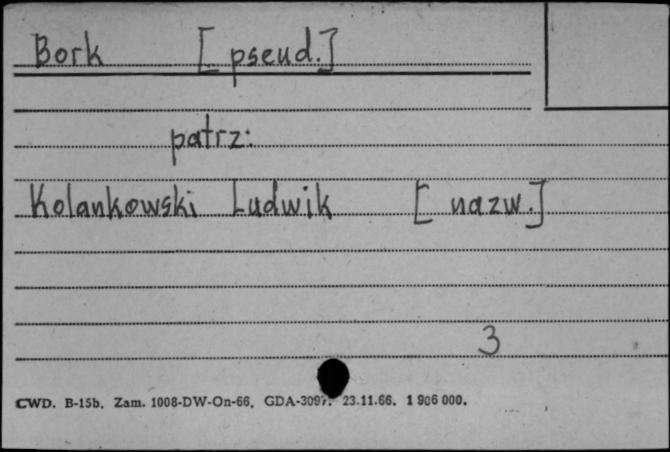 Bork [pseud.]
patrz:
Kolankowski Ludwik [nazw.]
3
CWD. B-15b. Zam. 1008-DW-On-66. GDA-3097. 23.11.66. 1 906 000.